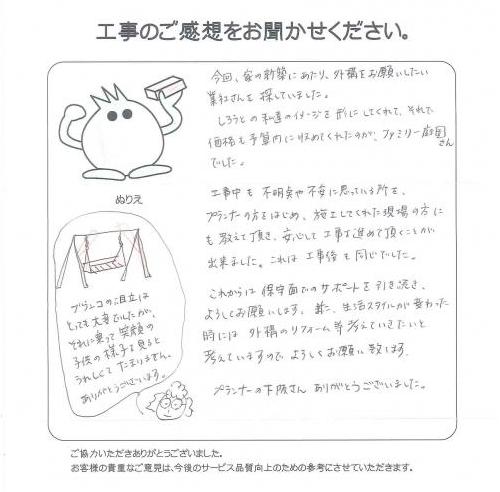 工事のご感想をお聞かせください。
今回、家の新築にあたり、外構をお願いしたい
業社さんを探していました。
しろうとの私達のイメージを形にしてくれて、それで
価格も予算内に収めてくれたのが、ファミリー庭園さん
でした。
ぬりえ
工事中も不明点や不安に思っている所を、
プランナーの方をはじめ、施工してくれた現場の方に
も教えて頂き、安心して工事を進めて頂くことが
出来ました。これは工事後も同じでした。
これからは保守面でのサポートを引き続き、
よろしくお願いします。また、生活スタイルが変わった
時には外構のリフォーム等考えていきたいと
考えていますので、よろしくお願い致します。
プランナーの下阪さんありがとうございました。
ブランコの組立は
とても大変でしたが、
それに乗って笑顔の
子供の様子を見ると
うれしくてたまりません。
ありがとうございます。
ご協力いただきありがとうございました。
お客様の貴重なご意見は、今後のサービス品質向上のための参考にさせていただきます。